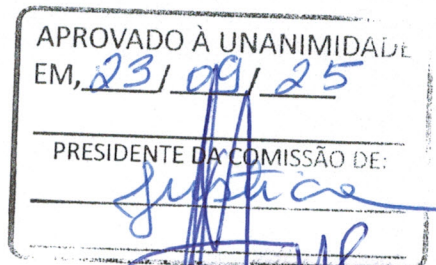 APROVADO À UNANIMIDADE
EM, 23 / 09 / 25
PRESIDENTE DA COMISSÃO DE:
Justiça